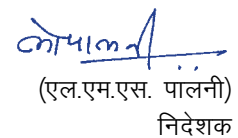 (एल.एम.एस. पालनी)
निदेशक